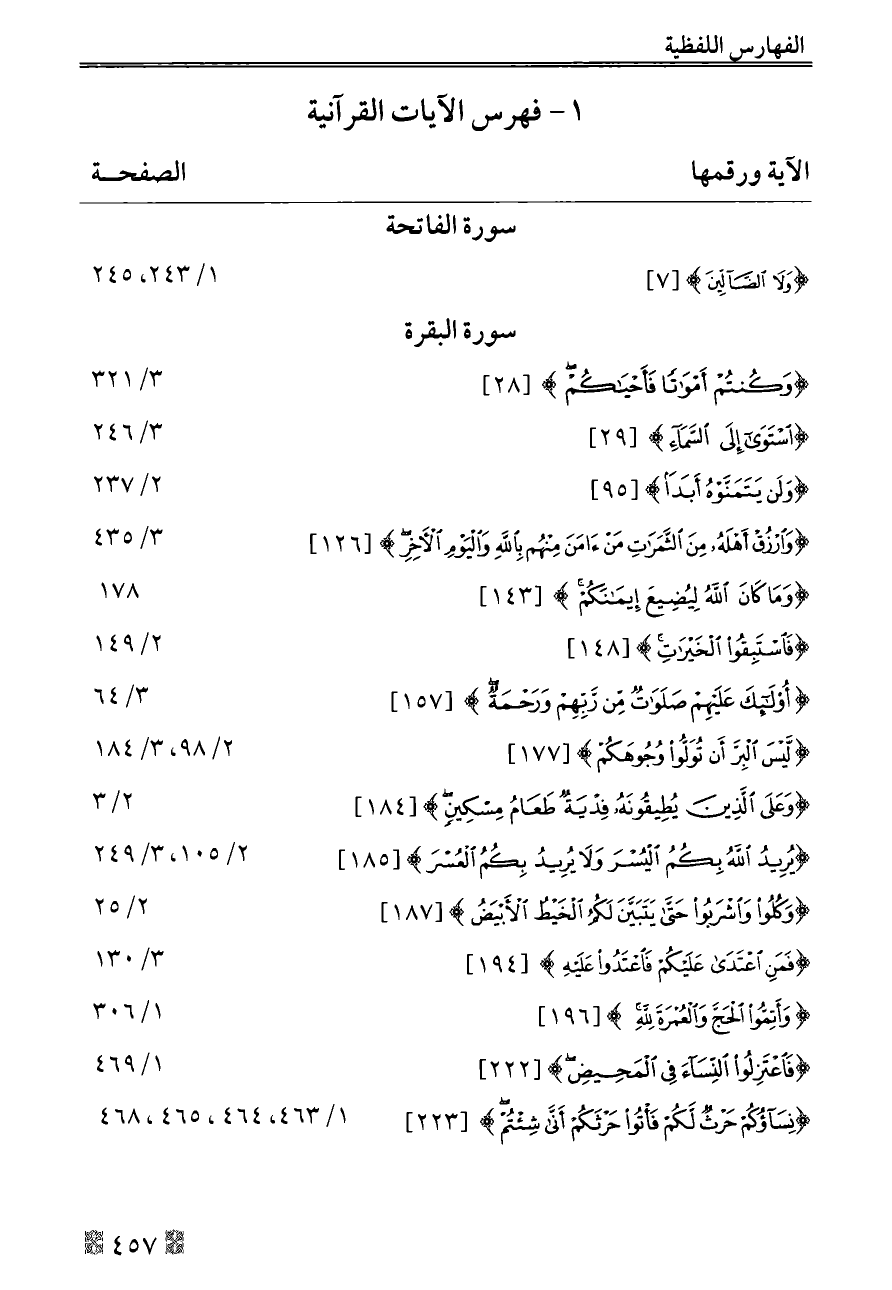 الفهارس اللفظية
١ - فهرس الآيات القرآنية
الآية ورقمها الصفحـــة
سورة الفاتحة
﴿وَلَا ٱلضَّآلِّينَ﴾ [٧] ١/ ٢٤٣، ٢٤٥
سورة البقرة
﴿وَكُنتُمْ أَمْوَٰتًا فَأَحْيَٰكُمْ ۖ﴾ [٢٨] ٣/ ٣٢١
﴿ٱسْتَوَىٰٓ إِلَى ٱلسَّمَآءِ﴾ [٢٩] ٣/ ٢٤٦
﴿وَلَن يَتَمَنَّوْهُ أَبَدًۢا﴾ [٩٥] ٢/ ٢٣٧
﴿وَٱرْزُقْ أَهْلَهُۥ مِنَ ٱلثَّمَرَٰتِ مَنْ ءَامَنَ مِنْهُم بِٱللَّهِ وَٱلْيَوْمِ ٱلْأَخِرِ ۖ﴾ [١٢٦] ٣/ ٤٣٥
﴿وَمَا كَانَ ٱللَّهُ لِيُضِيعَ إِيمَٰنَكُمْ ۚ﴾ [١٤٣] ١٧٨
﴿فَٱسْتَبِقُوا۟ ٱلْخَيْرَٰتِ ۚ﴾ [١٤٨] ٢/ ١٤٩
﴿أُو۟لَٰٓئِكَ عَلَيْهِمْ صَلَوَٰتٌ مِّن رَّبِّهِمْ وَرَحْمَةٌ ۖ﴾ [١٥٧] ٣/ ٦٤
﴿لَّيْسَ ٱلْبِرَّ أَن تُوَلُّوا۟ وُجُوهَكُمْ﴾ [١٧٧] ٢/ ٩٨، ٣/ ١٨٤
﴿وَعَلَى ٱلَّذِينَ يُطِيقُونَهُۥ فِدْيَةٌ طَعَامُ مِسْكِينٍ ۖ﴾ [١٨٤] ٢/ ٣
﴿يُرِيدُ ٱللَّهُ بِكُمُ ٱلْيُسْرَ وَلَا يُرِيدُ بِكُمُ ٱلْعُسْرَ﴾ [١٨٥] ٢/ ١٠٥، ٣/ ٢٤٩
﴿وَكُلُوا۟ وَٱشْرَبُوا۟ حَتَّىٰ يَتَبَيَّنَ لَكُمُ ٱلْخَيْطُ ٱلْأَبْيَضُ﴾ [١٨٧] ٢/ ٢٥
﴿فَمَنِ ٱعْتَدَىٰ عَلَيْكُمْ فَٱعْتَدُوا۟ عَلَيْهِ﴾ [١٩٤] ٣/ ١٣٠
﴿وَأَتِمُّوا۟ ٱلْحَجَّ وَٱلْعُمْرَةَ لِلَّهِ ۚ﴾ [١٩٦] ١/ ٣٠٦
﴿فَٱعْتَزِلُوا۟ ٱلنِّسَآءَ فِى ٱلْمَحِيضِ ۖ﴾ [٢٢٢] ١/ ٤٦٩
﴿نِسَآؤُكُمْ حَرْثٌ لَّكُمْ فَأْتُوا۟ حَرْثَكُمْ أَنَّىٰ شِئْتُمْ ۖ﴾ [٢٢٣] ١/ ٤٦٣، ٤٦٤، ٤٦٥، ٤٦٨
٤٥٧